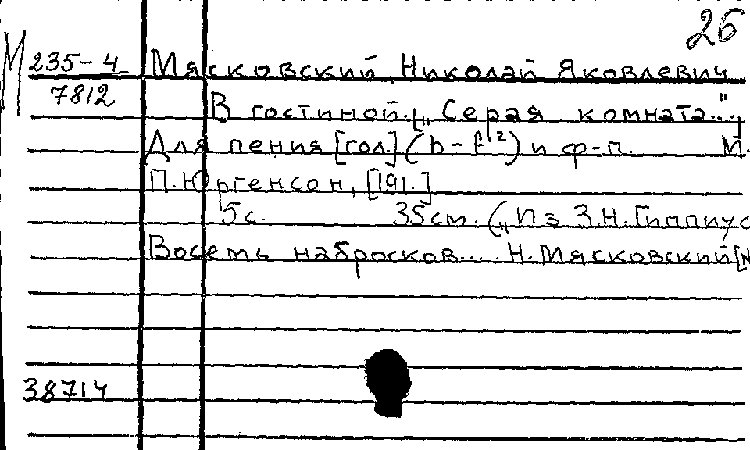 26
М 235-4 Мясковский, Николай Яковлевич
7812
В гостиной. („Серая комната..."
Для пения [гол.] (h-f²) и ф-п. М.
П. Юргенсон, [191.]
5с. 35см. („Из З.Н. Гиппиус
Восемь набросков... Н. Мясковский [N
38714